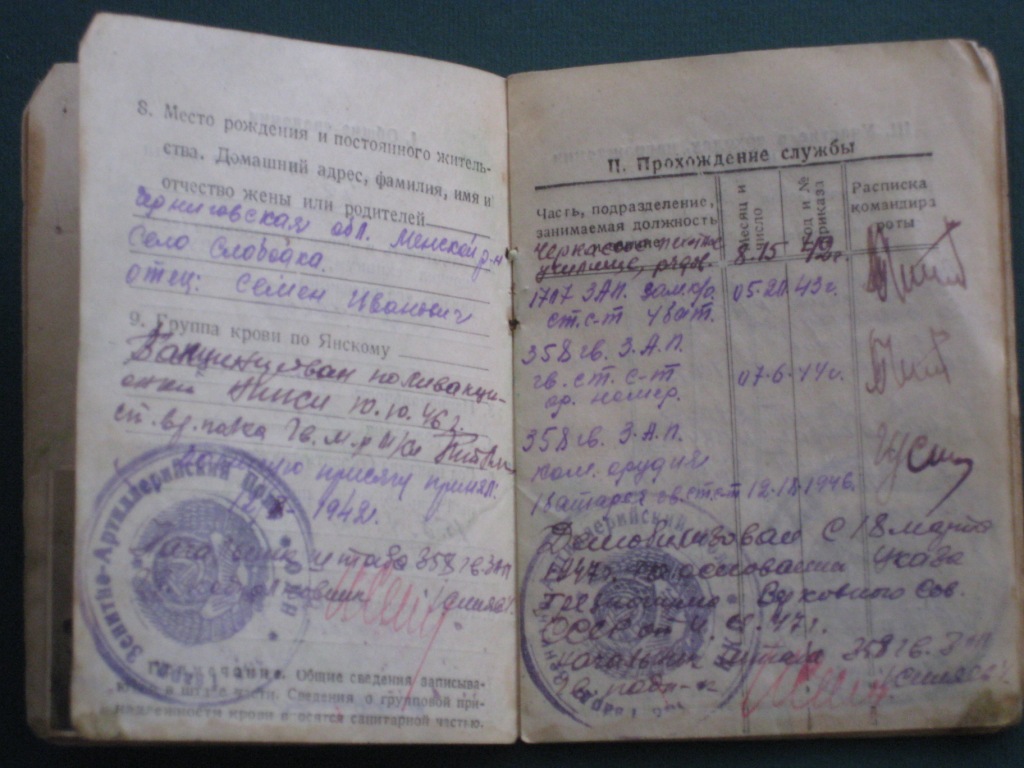 8. Место рождения и постоянного житель-
ства. Домашний адрес, фамилия, имя и
отчество жены или родителей
Черниговская обл. Менской р-н
село Слободка.
отец: Семен Иванович
9. Группа крови по Янскому
Вакцинирован поливакци-
ной 10.10.46г.
ст. вр. полка Гв. м-р м/с
Военную присягу принял:
1942г.
Начальник штаба 358 гв ЗАП
Зенитно-Артиллерийский Полк
Примечание. Общие сведения записыва-
в штабе части. Сведения о групповой при-
надлежности крови в осятся санитарной частью.
II. Прохождение службы
Часть, подразделение,
занимаемая должность
Месяц и
число
Год и №
приказа
Расписка
командира
роты
училище, рядов. 8.15 42г.
1707 ЗАП. зам. 05.20 43г.
ст. с-т 4 бат.
358 гв. З.А.П.
гв. ст. с-т 07.6. 44г.
ор. номер.
358 гв. З.А.П.
ком. орудия
1 батарея гв. ст. с-т 1946.
Демобилизован с 18 марта
1947г. на основании Указа
Президиума Верховного Сов.
СССР от 47г.
Начальник штаба 358 гв. ЗАП
Гв. подп-к